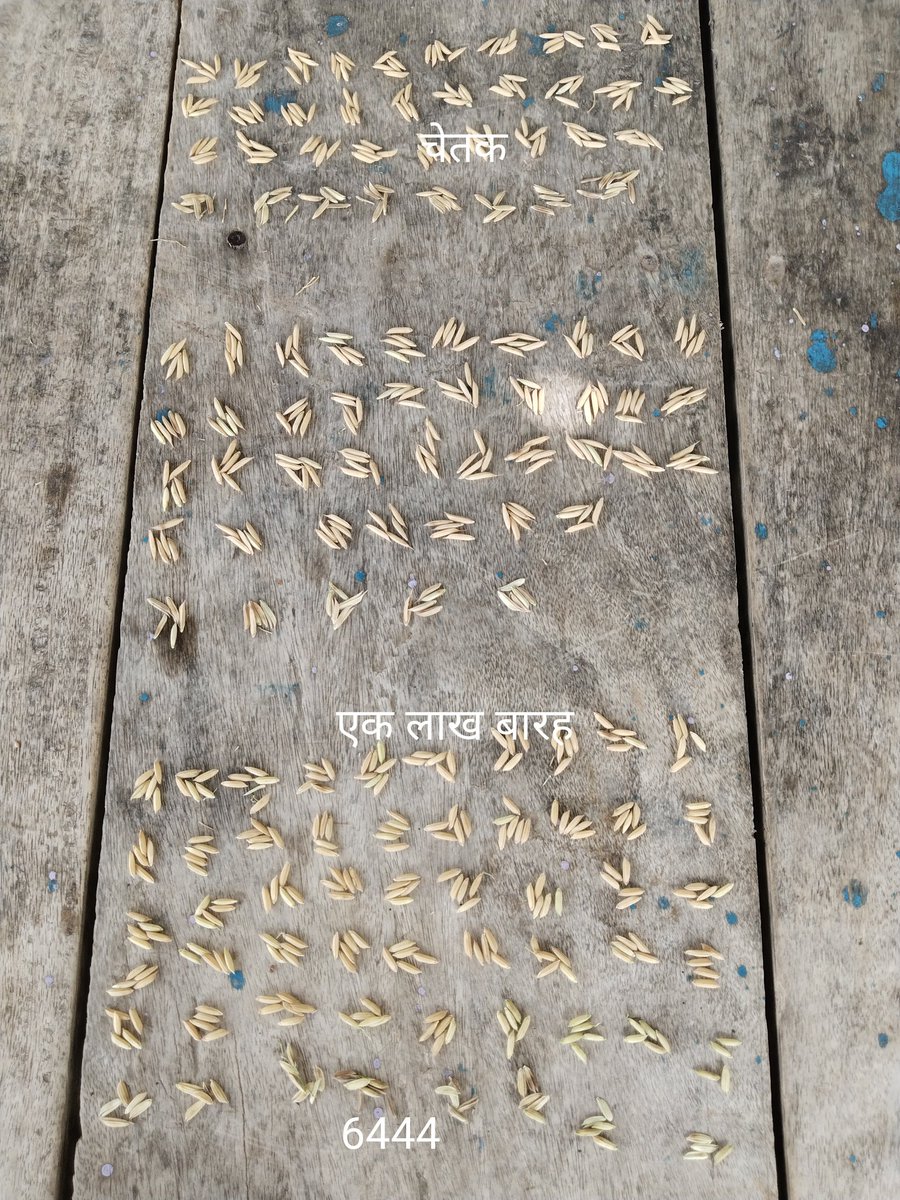 चेतक
एक लाख बारह
6444